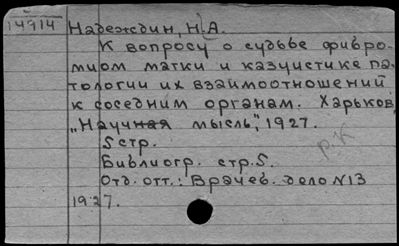 14914
Надеждин, Н.А.
К вопросу о судьбе фибро-
миом матки и казуистике па-
тологии их взаимоотношений
к соседним органам. Харьков,
„Научная мысль", 1927.
5 стр.
Библиогр. стр. 5.
р. К
Отд. отт.: Врачеб. дело №13
1927.